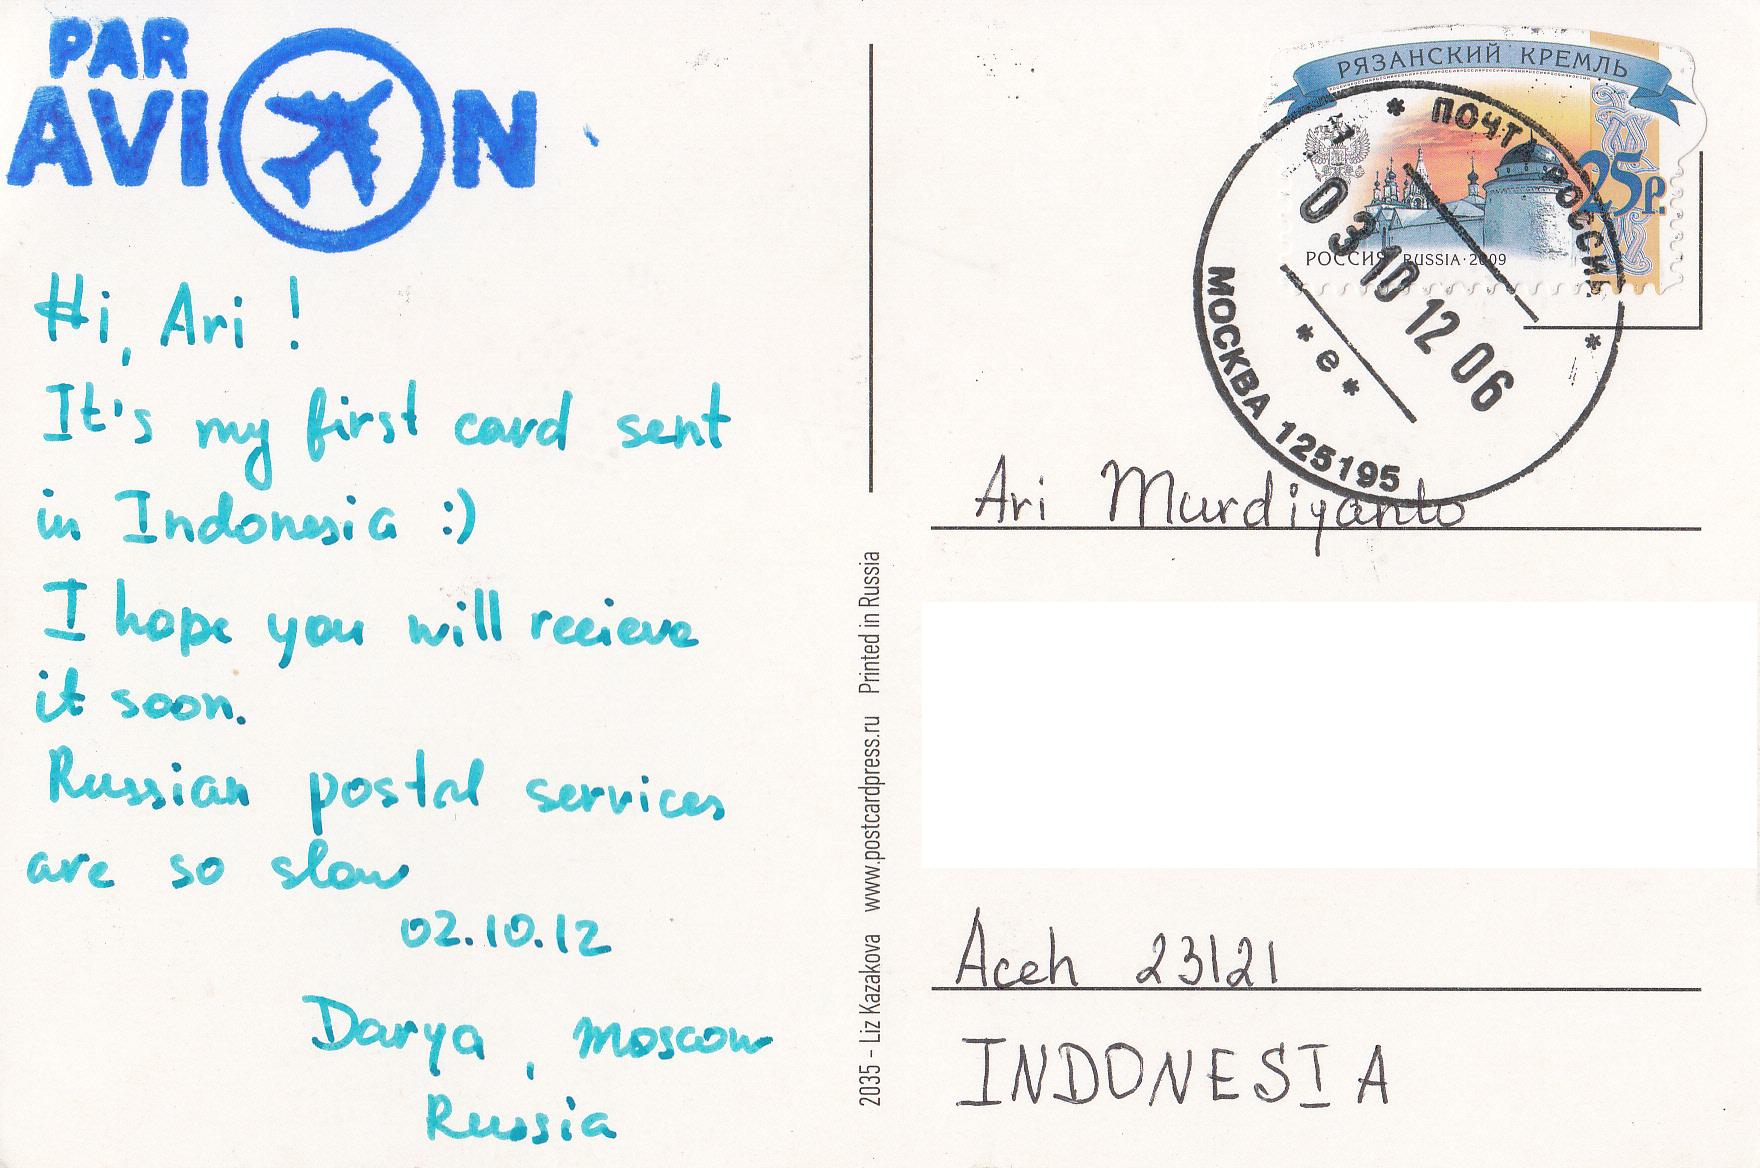 PAR
AVION
Hi, Ari !
It's my first card sent
in Indonesia :)
I hope you will recieve
it soon.
Russian postal services
are so slow
02.10.12
Darya, Moscow
Russia
2035 – Liz Kazakova www.postcardpress.ru Printed in Russia
РЯЗАНСКИЙ КРЕМЛЬ
25р.
РОССИЯ RUSSIA·2009
* ПОЧТ РОССИИ *
03 10 12 06
* е *
МОСКВА 125195
Ari Murdiyanto
Aceh 23121
INDONESIA